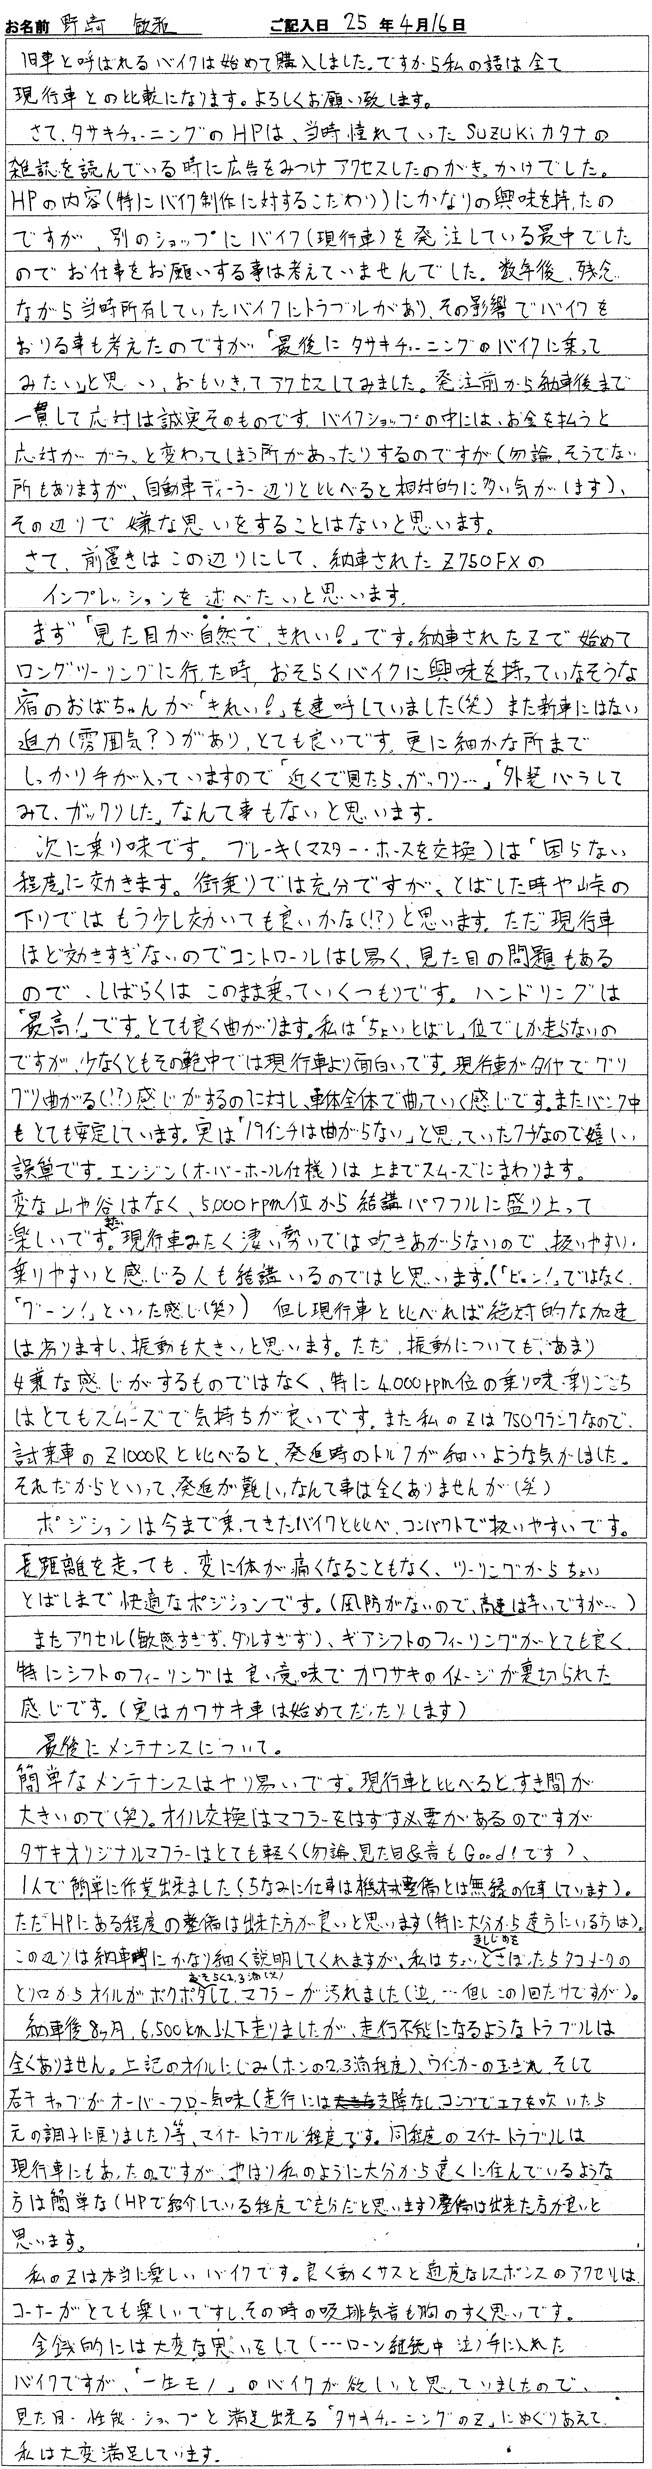 お名前 野崎 敏和 ご記入日 25年4月16日
旧車と呼ばれるバイクは始めて購入しました。ですから私の話は全て
現行車との比較になります。よろしくお願い致します。
さて、タサキチューニングのHPは、当時憧れていたSuzukiカタナの
雑誌を読んでいる時に広告をみつけアクセスしたのがきっかけでした。
HPの内容(特にバイク制作に対するこだわり)にかなりの興味を持ったの
ですが、別のショップにバイク(現行車)を発注している最中でした
のでお仕事をお願いする事は考えていませんでした。数年後、残念
ながら当時所有していたバイクにトラブルがあり、その影響でバイクを
おりる事も考えたのですが「最後にタサキチューニングのバイクに乗って
みたい」と思い、おもいきってアクセスしてみました。発注前から納車後まで
一貫して応対は誠実そのものです。バイクショップの中には、お金を払うと
応対がガラッと変わってしまう所があったりするのですが(勿論、そうでない
所もありますが、自動車ディーラー辺りと比べると相対的に多い気がします)、
その辺りで嫌な思いをすることはないと思います。
さて、前置きはこの辺りにして、納車されたZ750FXの
インプレッションを述べたいと思います。
まず「見た目が自然で、きれい!」です。納車されたZで始めて
ロングツーリングに行った時、おそらくバイクに興味を持っていなそうな
宿のおばちゃんが「きれい!」を連呼していました(笑) また新車にはない
迫力(雰囲気?)があり、とても良いです。更に細かな所まで
しっかり手が入っていますので「近くで見たら、ガックリ…」「外装バラして
みて、ガックリした」なんて事もないと思います。
次に乗り味です。ブレーキ(マスター・ホースを交換)は「困らない
程度」に効きます。街乗りでは充分ですが、とばした時や峠の
下りではもう少し効いても良いかな(!?)と思います。ただ現行車
ほど効きすぎないのでコントロールはし易く、見た目の問題もある
ので、しばらくはこのまま乗っていくつもりです。ハンドリングは
「最高!」です。とても良く曲がります。私は「ちょいとばし」位でしか走らないの
ですが、少なくともその範中では現行車より面白いです。現行車がタイヤでグリ
グリ曲がる(!?)感じがするのに対し、車体全体で曲っていく感じです。またバンク中
もとても安定しています。実は「19インチは曲がらない」と思っていたクチなので嬉しい
誤算です。エンジン(オーバーホール仕様)は上までスムーズにまわります。
変な山や谷はなく、5,000rpm位から結構パワフルに盛り上って
楽しいです。現行車みたく凄い勢いでは吹きあがらないので、扱いやすい・
乗りやすいと感じる人も結構いるのではと思います。(「ビョン!」ではなく、
「グーン!」といった感じ(笑)) 但し現行車と比べれば絶対的な加速
は劣りますし、振動も大きいと思います。ただ、振動についても、あまり
嫌な感じがするものではなく、特に4,000rpm位の乗り味・乗りごこち
はとてもスムーズで気持ちが良いです。また私のZは750クランクなので、
試乗車のZ1000Rと比べると、発進時のトルクが細いような気がしました。
それだからといって、発進が難しいなんて事は全くありませんが(笑)
ポジションは今まで乗ってきたバイクと比べ、コンパクトで扱いやすいです。
長距離を走っても、変に体が痛くなることもなく、ツーリングからちょい
とばしまで快適なポジションです。(風防がないので、高速は辛いですが…)
またアクセル(敏感すぎず、ダルすぎず)、ギアシフトのフィーリングがとても良く、
特にシフトのフィーリングは良い意味でカワサキのイメージが裏切られた
感じです。(実はカワサキ車は始めてだったりします)
最後にメンテナンスについて。
簡単なメンテナンスはヤリ易いです。現行車と比べると、すき間が
大きいので(笑)。オイル交換はマフラーをはずす必要があるのですが
タサキオリジナルマフラーはとても軽く(勿論、見た目&音もGood!です)、
1人で簡単に作業出来ました(ちなみに仕事は機械整備とは無縁の仕事しています)。
ただHPにある程度の整備は出来た方が良いと思います(特に大分から違うにいる方は)。
この辺りは納車時にかなり細く説明してくれますが、私はちょいとさぼったらタコメークの
とり口からオイルがポタポタして、マフラーが汚れました(泣、…但しこの1回だけですが)。
納車後8ヶ月、6,500km以下走りましたが、走行不能になるようなトラブルは
全くありません。上記のオイルにじみ(ホンの2,3滴程度)、ウインカーの玉きれ、そして
若干キャブがオーバーフロー気味(走行には支障なし、コンプでエアを吹いたら
元の調子に戻りました)等、マイナートラブル程度です。同程度のマイナートラブルは
現行車にもあったのですが、やはり私のように大分から遠くに住んでいるような
方は簡単な(HPで紹介している程度で充分だと思います)整備は出来た方が良いと
思います。
私のZは本当に楽しいバイクです。良く動くサスと適度なレスポンスのアクセルは、
コーナーがとても楽しいですし、その時の吸排気音も胸のすく思いです。
金銭的には大変な思いをして(…ローン継続中 泣)手に入れた
バイクですが、「一生モノ」のバイクが欲しいと思っていましたので、
見た目・性能・ショップと満足出来る「タサキチューニングのZ」にめぐりあえて、
私は大変満足しています。